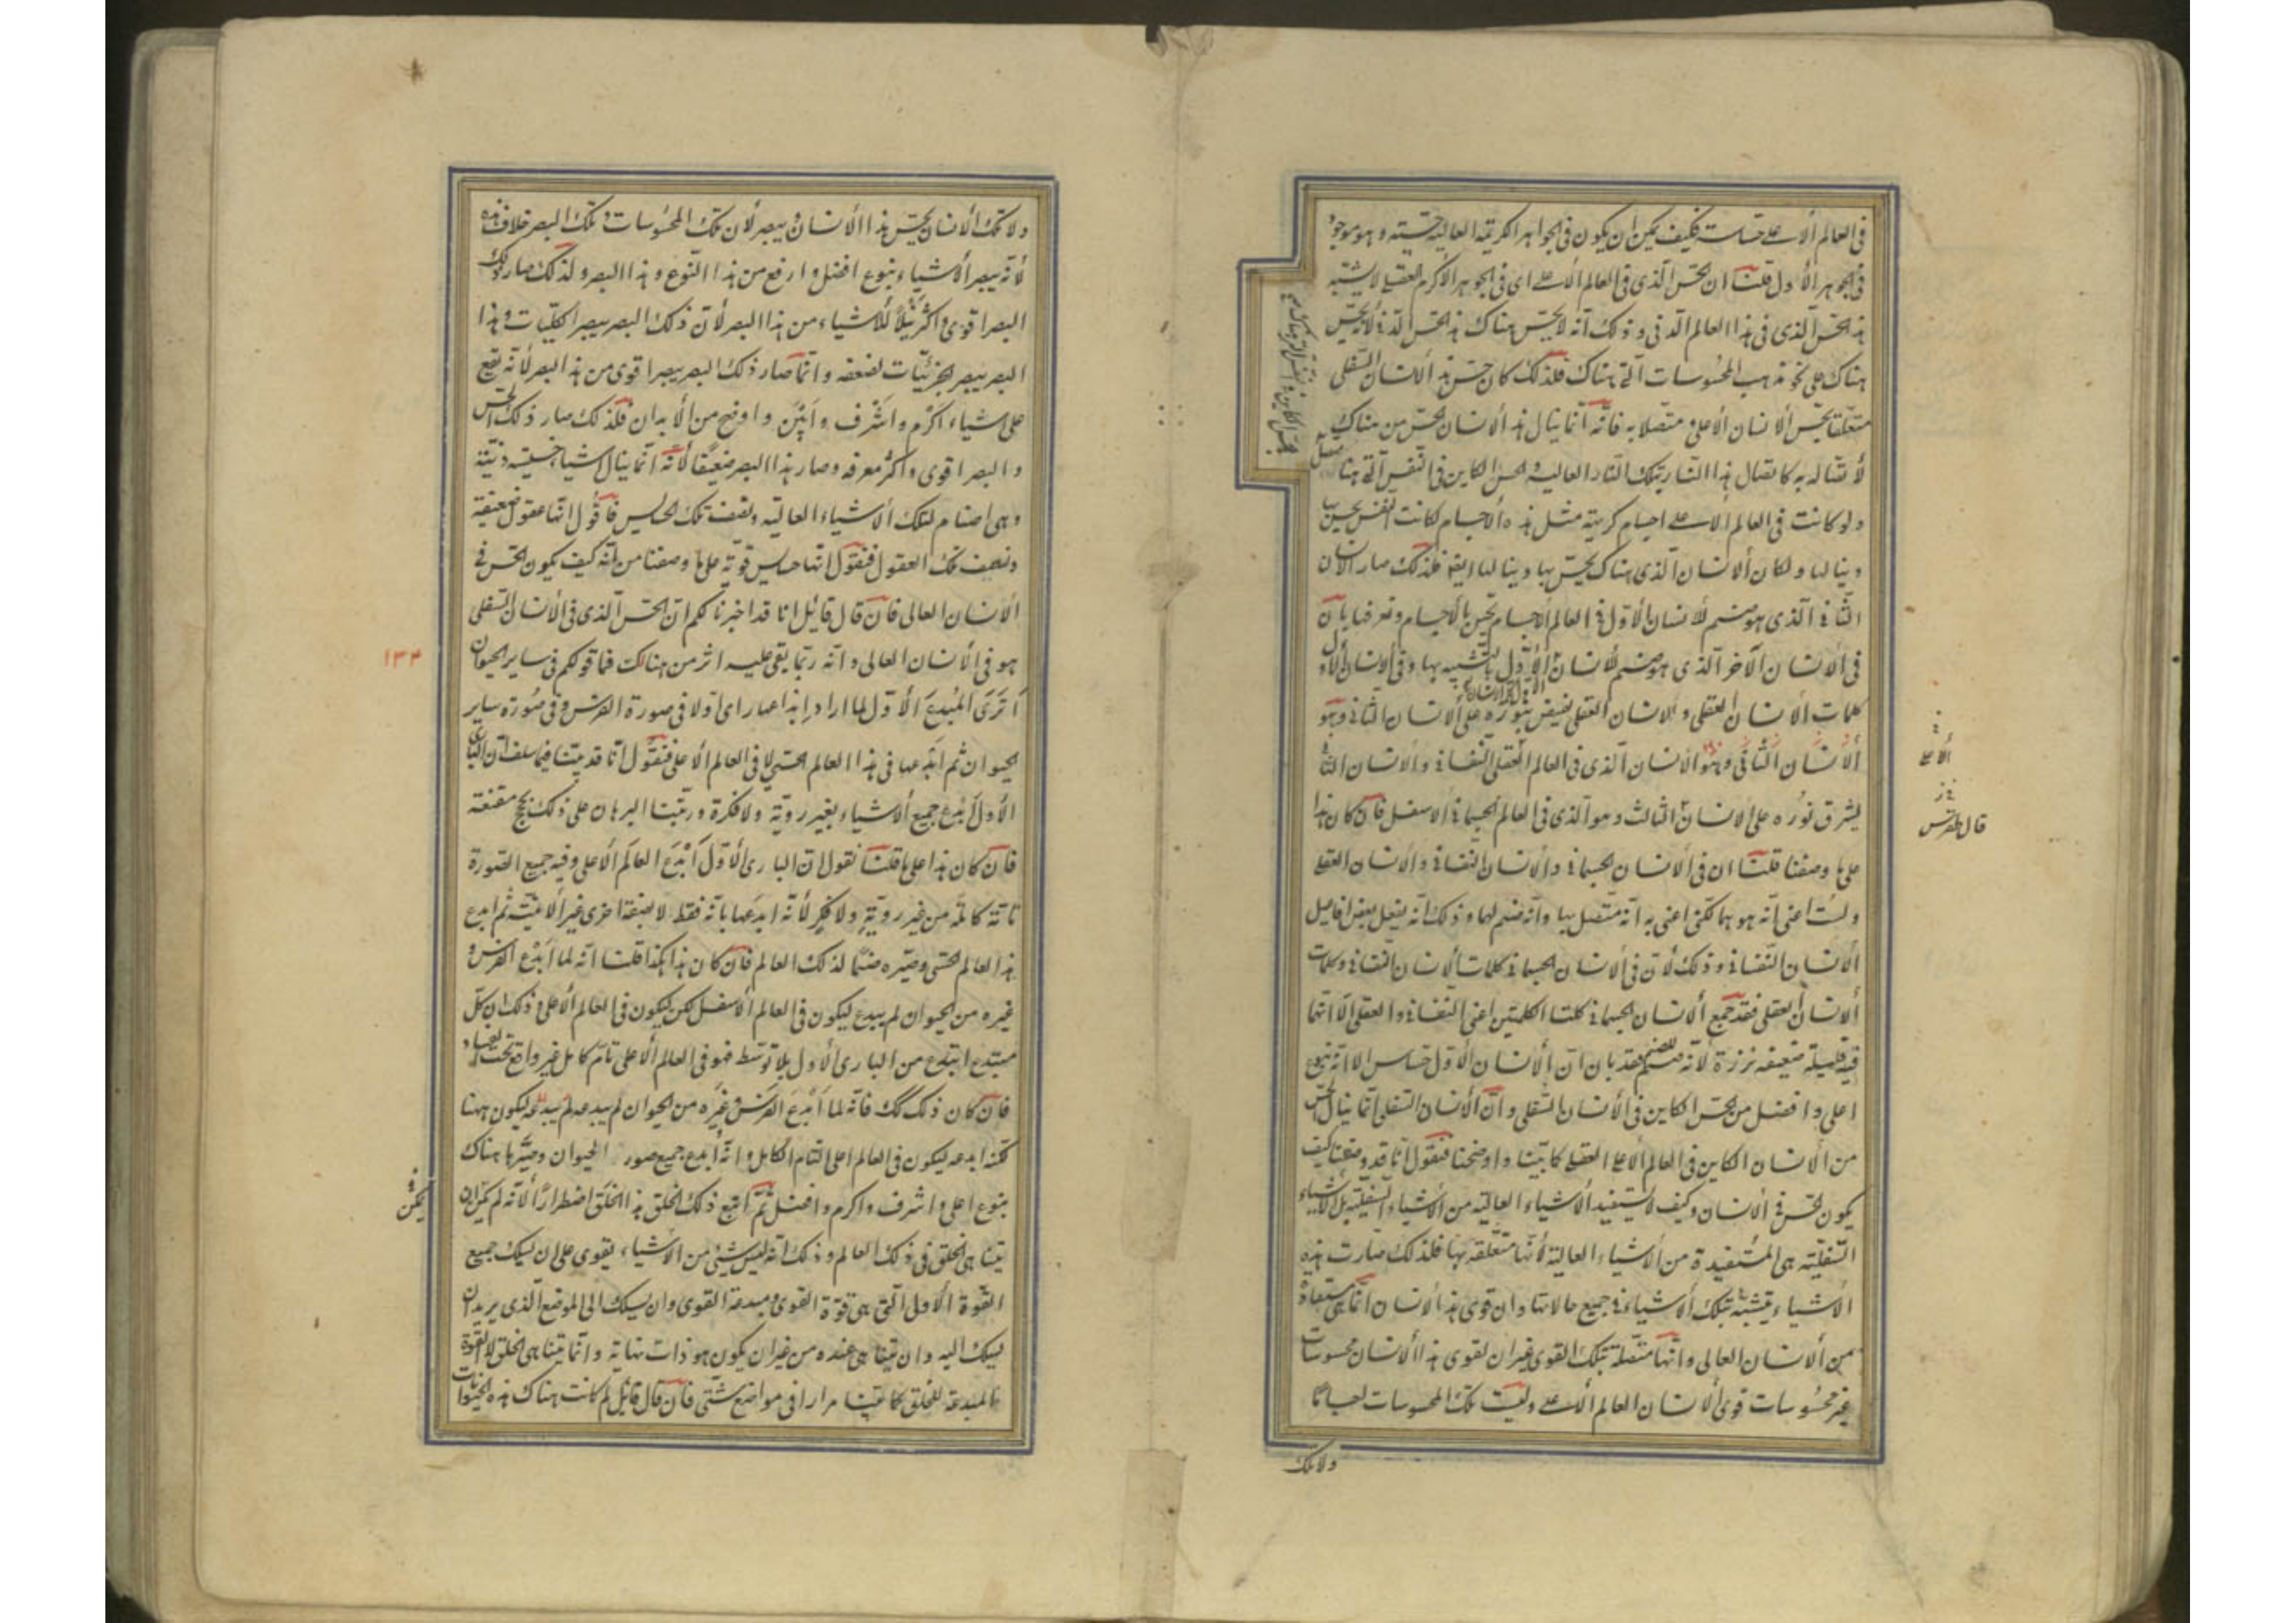 في العالم الاعلى حساسة فكيف يمكن ان يكون في الجواهر الكريمة العالية حسية وهو موجود
في الجوهر الاول قلنا ان الحس الذي في العالم الاعلى اي في الجوهر الاكرم العقلي لا يشبه
هذا الحس الذي في هذا العالم الدني وذلك انه لا يحس هناك هذا الحس الدني لانه يحس
هناك على نحو مذهب المحسوسات التي هناك فلذلك كان حس هذا الانسان السفلي
متعلقا بحس الانسان الاعلى متصلا به فانه انما ينال هذا الانسان الحس من هناك
لاتصاله به كاتصال هذا النار بتلك النار العالية والحس الكاين في النفس التي هنا متصل
بالحس الكاين في النفس التي هناك
ولو كانت في العالم الاعلى اجسام كريمة مثل هذه الاجسام لكانت النفس يحس بها
وينالها ولكان الانسان الذي هناك يحس بها وينالها ايضا فلذلك صار الانسان
الثاني الذي هو صنم للانسان الاول في العالم الاجسام يحس بالاجسام ويعرفها بان
في الانسان الآخر الذي هو صنم للانسان الاول بالتشبه بها وفي الانسان الاول
كلمات الانسان العقلي والانسان العقلي يفيض بنوره على الانسان الثاني وهو
الانسان الثاني وهو الانسان الذي في العالم العقلي النفساني والانسان الثاني
الاعلى
يشرق نوره على الانسان الثالث وهو الذي في العالم الجسماني الاسفل فان كان هذا
على ما وصفنا قلنا ان في الانسان الجسماني والانسان النفساني والانسان العقلي
ولست اعني انه هو هما لكني اعني به انه متصل بها وانه صنم لهما وذلك انه يفعل بعض افاعيل
الانسان النفساني وذلك لان في الانسان الجسماني كلمات الانسان النفساني وكلمات
الانسان العقلي فقد جمع الانسان الجسماني كلتا الكلمتين اعني النفساني والعقلي الا انهما
فيه قليلة ضعيفة نزرة لانه صنم للصنم فقد بان ان الانسان الاول حساس الا انه بنوع
اعلى وافضل من الحس الكاين في الانسان السفلي وان الانسان السفلي انما ينال الحس
من الانسان الكاين في العالم الاعلى العقلي كما بينا واوضحنا فنقول انا قد وصفنا كيف
يكون الحس في الانسان وكيف لا يستفيد الاشياء العالية من الاشياء السفلية بل الاشياء
السفلية هي المستفيدة من الاشياء العالية لانها متعلقة بها فلذلك صارت هذه
الاشياء يتشبه بتلك الاشياء في جميع حالاتها وان قوى هذا الانسان انما هي مستفادة
من الانسان العالي وانها متصلة بتلك القوى غير ان لقوى هذا الانسان محسوسات
غير محسوسات قوى الانسان العالم الاعلى وليست تلك المحسوسات اجساما
ولا تلك
ولا تلك الانسان يحس هذا الانسان ويبصر لان تلك المحسوسات وتلك البصر خلاف هذه
لانه يبصر الاشياء بنوع افضل وارفع من هذا النوع وهذا البصر ولذلك صار ذلك
البصر اقوى واكثر نيلا للاشياء من هذا البصر لان ذلك البصر يبصر الكليات وهذا
البصر يبصر الجزئيات لضعفه وانما صار ذلك البصر يبصر اقوى من هذا البصر لانه يقع
على اشياء اكرم واشرف وابين واوضح من الابدان فلذلك صار ذلك الحس
والبصر اقوى واكثر معرفة وصار هذا البصر ضعيفا لانه انما ينال اشياء خسيسة دنية
وهي اصنام لتلك الاشياء العالية ونصف تلك الحسايس فاقول انها عقول ضعيفة
ونصف تلك العقول فنقول انها حسايس قوية على ما وصفنا من انه كيف يكون الحس في
الانسان العالي فان قال قائل انا قد اخبرناكم ان الحس الذي في الانسان السفلي
هو في الانسان العالي وانه ربما يقى عليه اثر من هنالك فما قولكم في ساير الحيوان
١٣٤
اترى المبدع الاول لما اراد ابداعها راى اولا في صورة الفرس وفي صورة ساير
الحيوان ثم ابدعها في هذا العالم الحسي لا في العالم الاعلى فنقول انا قد بينا فيما سلف ان الباري
الاول ابدع جميع الاشياء بغير روية ولا فكرة ورتبنا البرهان على ذلك بحجج مقنعة
فان كان هذا على ما قلنا نقول ان الباري الاول ابدع العالم الاعلى وفيه جميع الصورة
تامة كاملة من غير روية ولا فكر لانه ابدعها بانه فقط لا بصفة اخرى غير الانية ثم ابدع
هذا العالم الحسي وصيره صنما لذلك العالم فان كان هذا هكذا قلنا انه لما ابدع الفرس و
غيره من الحيوان لم يبدع ليكون في العالم الاسفل لكن ليكون في العالم الاعلى وذلك ان كل
مبتدع ابتدع من الباري الاول بلا توسط فهو في العالم الاعلى تام كامل غير واقع تحت الفساد
فان كان ذلك كك فانه لما ابدع الفرس وغيره من الحيوان لم يبدعه ليكون ههنا
لكنه ابدعه ليكون في العالم اعلى التام الكامل وانه ابدع جميع صور الحيوان وصيرها هناك
بنوع اعلى واشرف واكرم وافضل ثم اتبع ذلك الخلق هذا الخلق اضطرارا لانه لم يكن ان
يمكن
يتناهى الخلق في ذلك العالم وذلك انه ليس شيئ من الاشياء يقوى على ان يسلك جميع
القوة الاولى التي هي قوة القوى ومبدعة القوى وان يسلك الى الموضع الذي يريد ان
يسلك اليه وان يتناهى عنده من غير ان يكون هو ذات نهاية وانما يتناهى الخلق لا القوة
المبدعة للخلق كما بينا مرارا في مواضع شتى فان قال قائل لم كانت هناك هذه الحيوانات